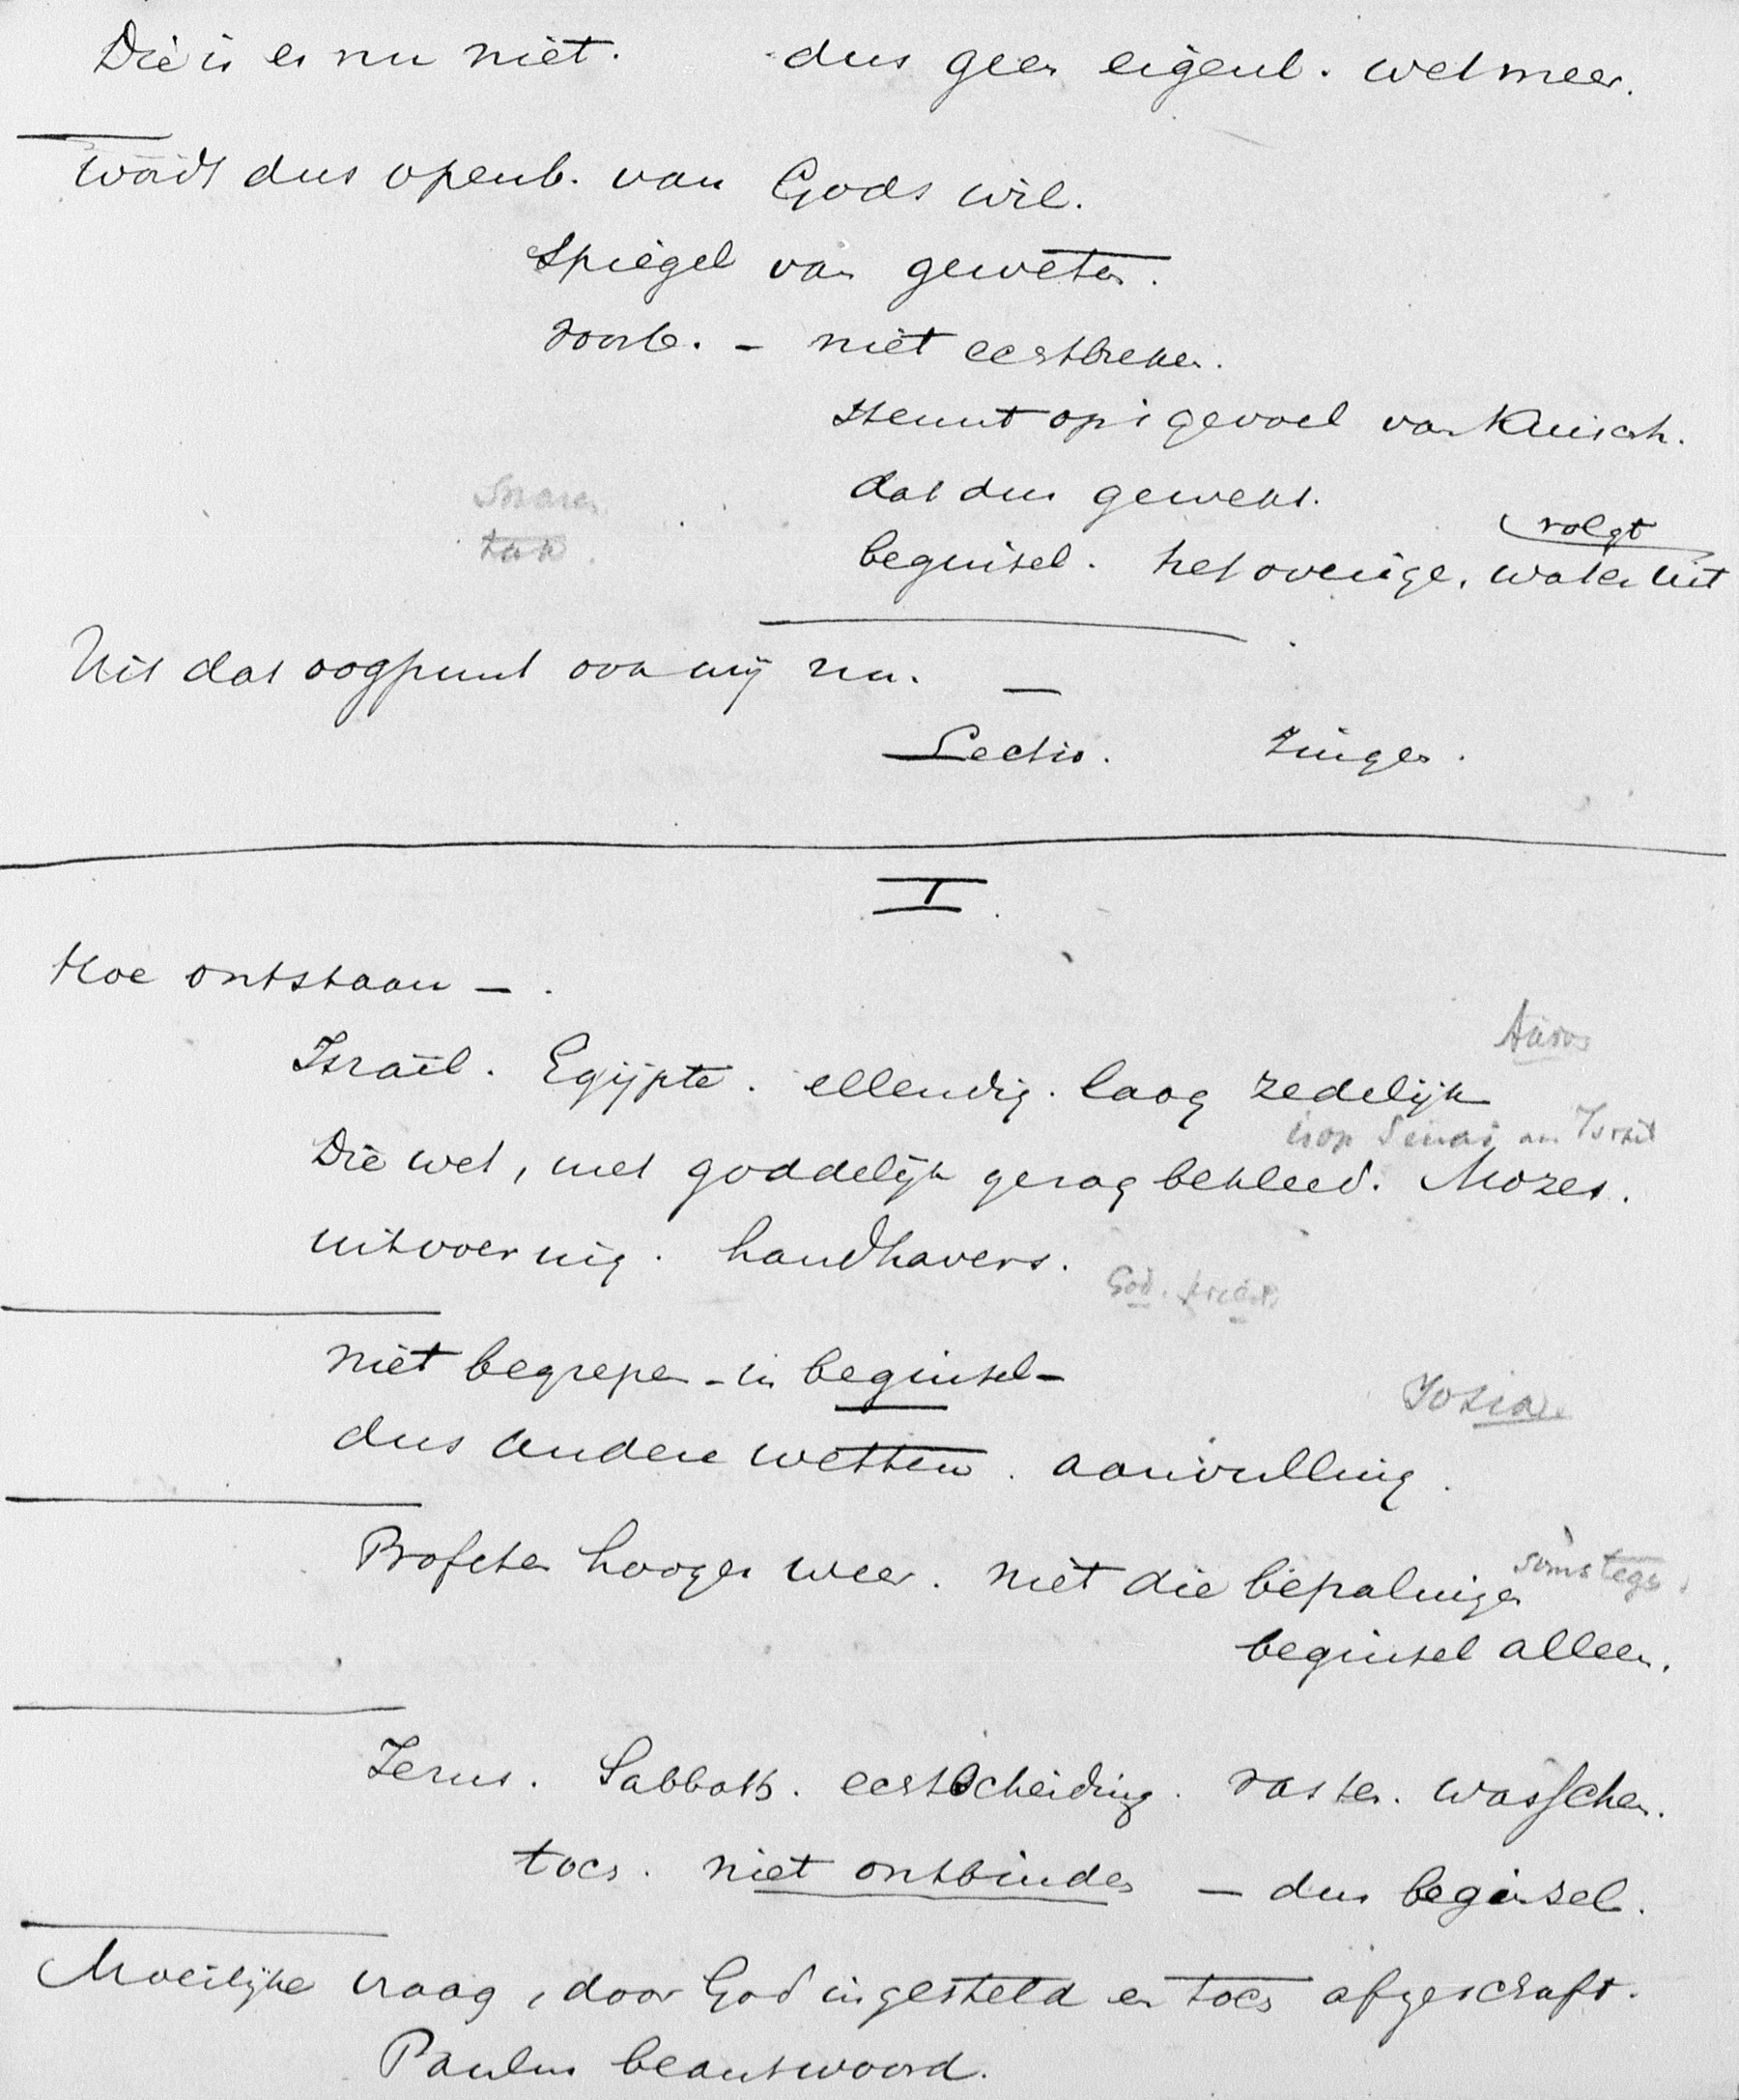 Die is er nu niet. dus geen eigenl. wet meer.
Wordt dus openb. van Gods wil.
Spiegel van geweten.
voorb. - niet echtbreken.
steunt op 't gevoel van Kuisch.
dat dus gewekt.
volgt
beginsel. het overige, wat er uit
Uit dat oogpunt ook wij nu. —
Lectio. Zingen.
I.
Hoe ontstaan - .
Israël. Egijpte. ellendig. laag zedelijk
is op Sinai aan Israël
Die wet, met goddelijk gezag bekleed. Mozes.
uitvoering. handhavers.
God.
niet begrepen - in beginsel -
Josia
dus andere wetten. aanvulling.
soms tegen
Profeten hooger weer. niet die bepalingen
beginsel alleen.
Jezus. Sabbath. echtscheiding. vasten. wasschen.
toch. niet ontbinden - dus beginsel.
Moeilijke vraag, door God ingesteld en toch afgeschaft.
Paulus beantwoord.